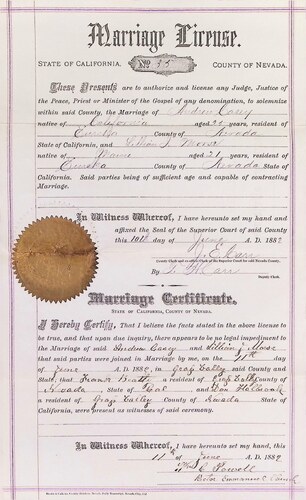 Marriage License.
STATE OF CALIFORNIA. No. 35 COUNTY OF NEVADA.
These Presents are to authorize and license any Judge, Justice of
the Peace, Priest or Minister of the Gospel of any denomination, to solemnize
within said County, the Marriage of Andrew Casey
native of California aged 25 years, resident of
Eureka County of Nevada
State of California, and Lillian J. Moore
native of Maine aged 21 years, resident of
Eureka County of Nevada State of
California. Said parties being of sufficient age and capable of contracting
Marriage.
In Witness Whereof, I have hereunto set my hand and
affixed the Seal of the Superior Court of said County
this 10th day of June A. D. 1889
County Clerk and ex-officio Clerk of the Superior Court for said Nevada County.
By
Deputy Clerk.
Marriage Certificate.
STATE OF CALIFORNIA, COUNTY OF NEVADA.
I Hereby Certify, That I believe the facts stated in the above license to
be true, and that upon due inquiry, there appears to be no legal impediment to
the Marriage of said Andrew Casey and Lillian J. Moore
that said parties were joined in Marriage by me, on the 11th day
of June A.D. 1889, in Grass Valley said County and
State; that Beatty a resident of Grass Valley County of
Nevada State of and
a resident of Grass Valley County of Nevada State of
California, were present as witnesses of said ceremony.
In Witness Whereof, I have hereunto set my hand, this
11th day of June A. D. 1889
C. Powell
Emmanuel Church